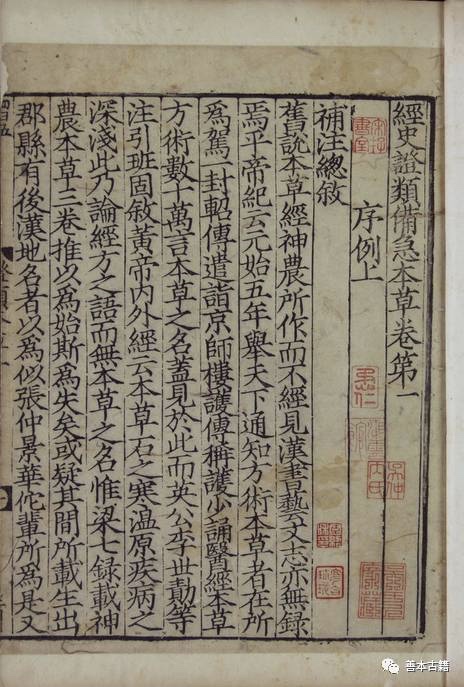 經史證類備急本草卷第一
序例上
補注總敘
舊說本草經神農所作而不經見漢書藝文志亦無錄
焉平帝紀云元始五年舉天下通知方術本草者在所
為駕一封軺傳遣詣京師樓護傳稱護少誦醫經本草
方術數十萬言本草之名蓋見於此而英公李世勣等
注引班固敘黃帝內外經云本草石之寒溫原疾病之
深淺此乃論經方之語而無本草之名惟梁七錄載神
農本草三卷推以為始斯為失矣或疑其間所載生出
郡縣有後漢地名者以為似張仲景華佗輩所為是又
善本古籍